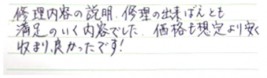 修理内容の説明、修理の出来ばえとも
満足のいく内容でした。価格も想定より安く
収まり良かったです!